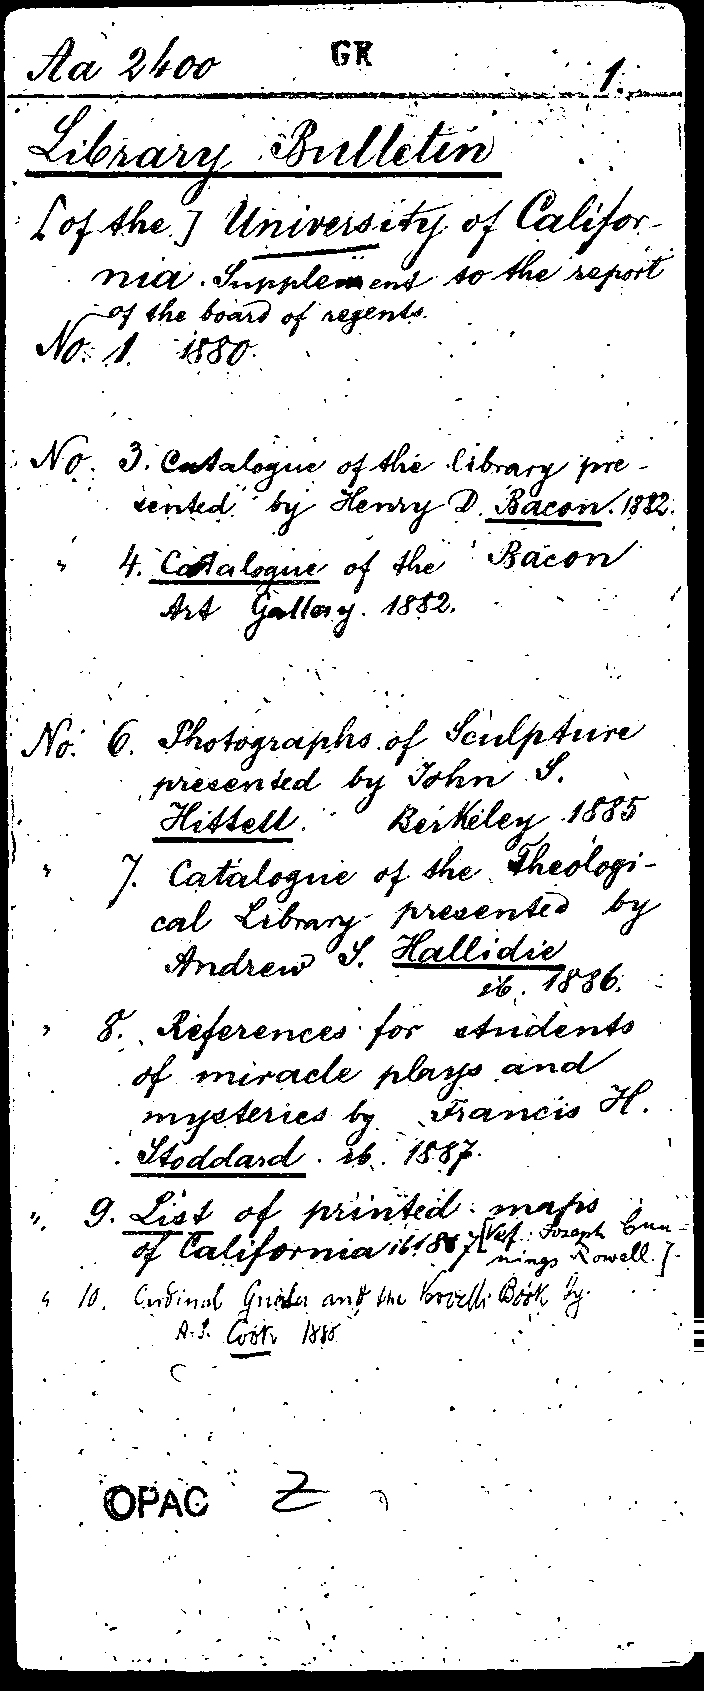 Aa 2400 GK 1.
Library Bulletin
[of the] University of Califor-
nia. Supplement to the report
of the board of regents.
No. 1. 1880.
No. 3. Catalogue of the library pre-
sented by Henry D. Bacon. 1882.
" 4. Catalogue of the Bacon
Art Gallery. 1882.
No. 6. Photographs of Sculpture
presented by John S.
Hittell. Berkeley 1885
" 7. Catalogue of the Theologi-
cal Library presented by
Andrew S. Hallidie
ib. 1886.
" 8. References for students
of miracle plays and
mysteries by Francis H.
Stoddard. ib. 1887.
" 9. List of printed maps
of California ib. 1887 [Verf.: Joseph Cum-
mings Rowell.]
" 10. Cardinal and the Vercelli Book by
A. S. Cook 1888
OPAC Z